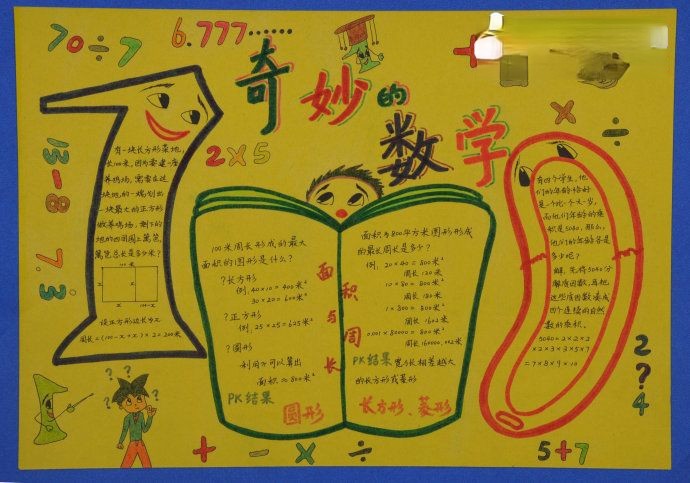 70÷7
6.777……
奇妙的
数学
2×5
13-8
7.3
有一块长方形菜地,
长100米,因为要建一座
养鸡场,需要在这
块地的一端划出
一块最大的正方形
做养鸡场,剩下的
地的四周围上篱笆,
篱笆总长是多少米?
100米
x
x
100-x
设正方形边长为x
周长=(100-x+x)×2=200米
100米周长形成的最大
面积的图形是什么?
?长方形
例.40×10=400米²
30×20=600米²
?正方形
例.25×25=625米²
?圆形
利用π可以算出
面积≈800米²
PK结果
圆形
面积与周长
面积为800平方米图形形成
的最长周长是多少?
例.20×40=800米²
周长120米
10×80=800米²
周长180米
1×800=800米²
周长1602米
0.001×80000=800米²
周长160000.002米
PK结果 宽与长相差越大
的长方形或菱形
长方形、菱形
有四个学生,他
们的年龄恰好
是一个比一个大一岁,
而他们年龄的乘
积是5040,那么,
他们的年龄各是
多少呢?
解:先将5040分
解质因数,再把
这些质因数凑成
四个连续的自然
数的乘积。
5040=2×2×2
×2×3×3×5×7
=7×8×9×10
+
×
÷
2?4
???
+ - × ÷
5+7